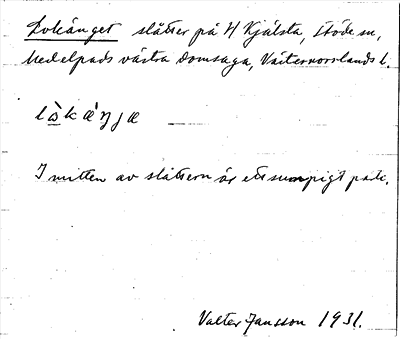 Lokänget slåtter på 4 Kjälsta, Stöde sn,
Medelpads västra domsaga, Västernorrlands l.
lò̱kæ̀ŋjæ
I mitten av slåttern är ett sumpigt parti.
Valter Jansson 1931.